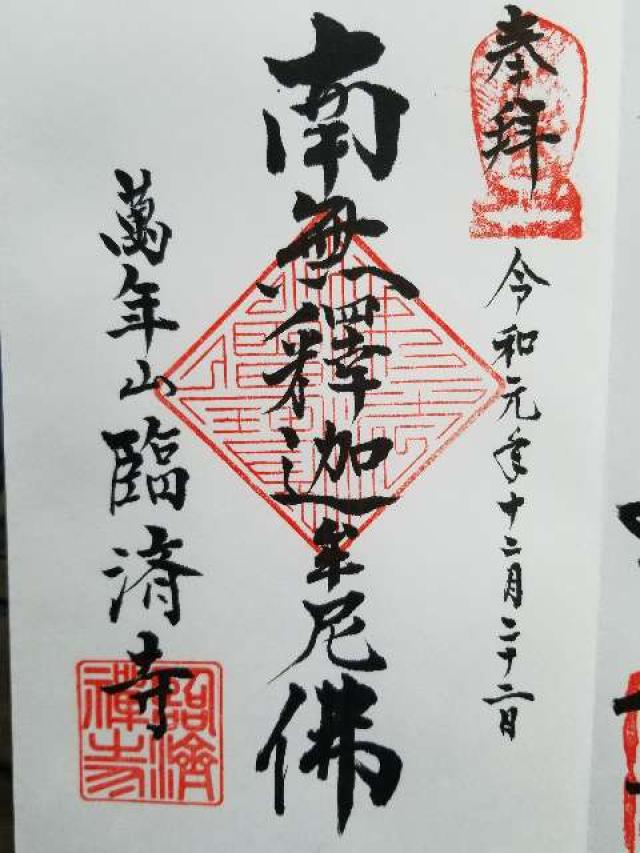 奉拝
令和元年十二月二十二日
南無釋迦牟尼佛
萬年山臨済寺
臨濟禅寺